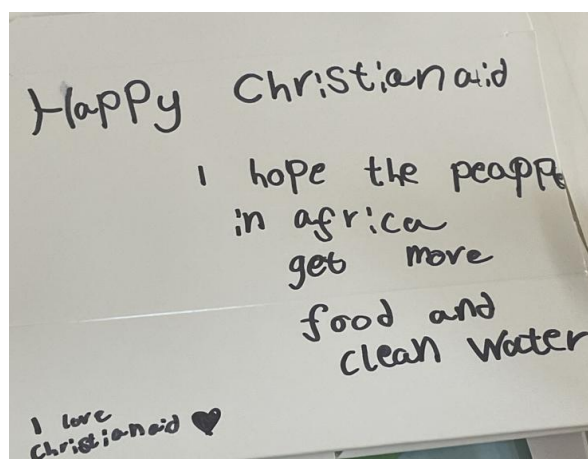 Happy Christian aid
I hope the peapple
in africa
get more
food and
clean water
I love
christian aid ♥